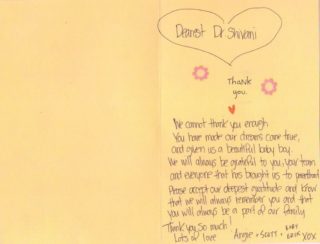 Dearest Dr. Shivani
Thank
you.
We cannot thank you enough
You have made our dreams come true,
and given us a beautiful baby boy.
We will always be grateful to you, your team
and everyone that has brought us to parenthood
Please accept our deepest gratitude and know
that we will always remember you and that
you will always be a part of our family
Thank you so much!
Lots of love Angie + Scott + Baby
xox